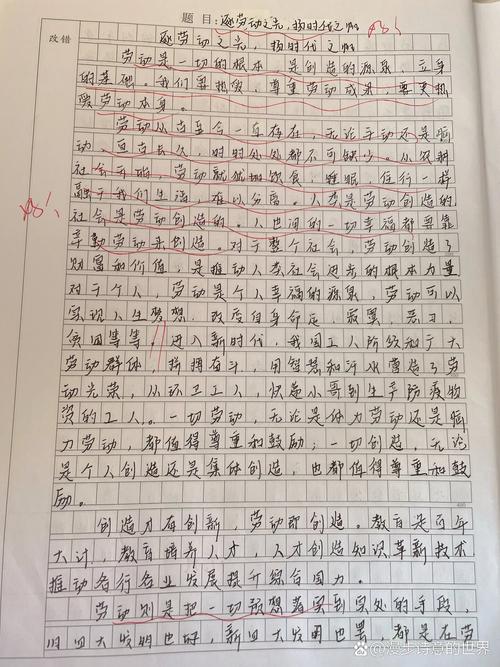 题 目：逐劳动之光，扬时代之帆
改错
逐劳动之光，扬时代之帆
劳动是一切的根本，是创造的源泉，立身
的基础。我们要热爱，尊重劳动成果，要更热
爱劳动本身。
劳动从古至今一直存在，无论手动还是脑
动，亘古长久，时时处处都不可缺少。从
社会开始，劳动就犹如饮食，睡眠，住行一样
融于我们生活，难以分离。人类是劳动创造的
社会是劳动创造的。人世间的一切幸福都要靠
辛勤劳动来创造。对于整个社会，劳动创造了
财富和价值，是推动人类社会进步的根本力量
对于个人，劳动是个人幸福的源泉，劳动可以
实现人生梦想，改变自身命运，寂寞，恶习，
贫困等等。进入新时代，我国工人阶级和广大
劳动群体，拼搏奋斗，用智慧和汗水营造了劳
动光荣，从环卫工人，快递小哥到生产防疫物
资的工人。一切劳动，无论是体力劳动还是脑
力劳动，都值得尊重和鼓励；一切创造，无论
是个人创造还是集体创造，也都值得尊重和鼓
励。
创造才有创新，劳动即创造。教育是百年
大计，教育培养人才，人才创造知识革新技术
推动各行各业发展提升综合国力。
劳动则是把一切预想落实到实处的手段，
旧四大发明也好，新四大发明也罢，都是在劳
漫步诗意的世界